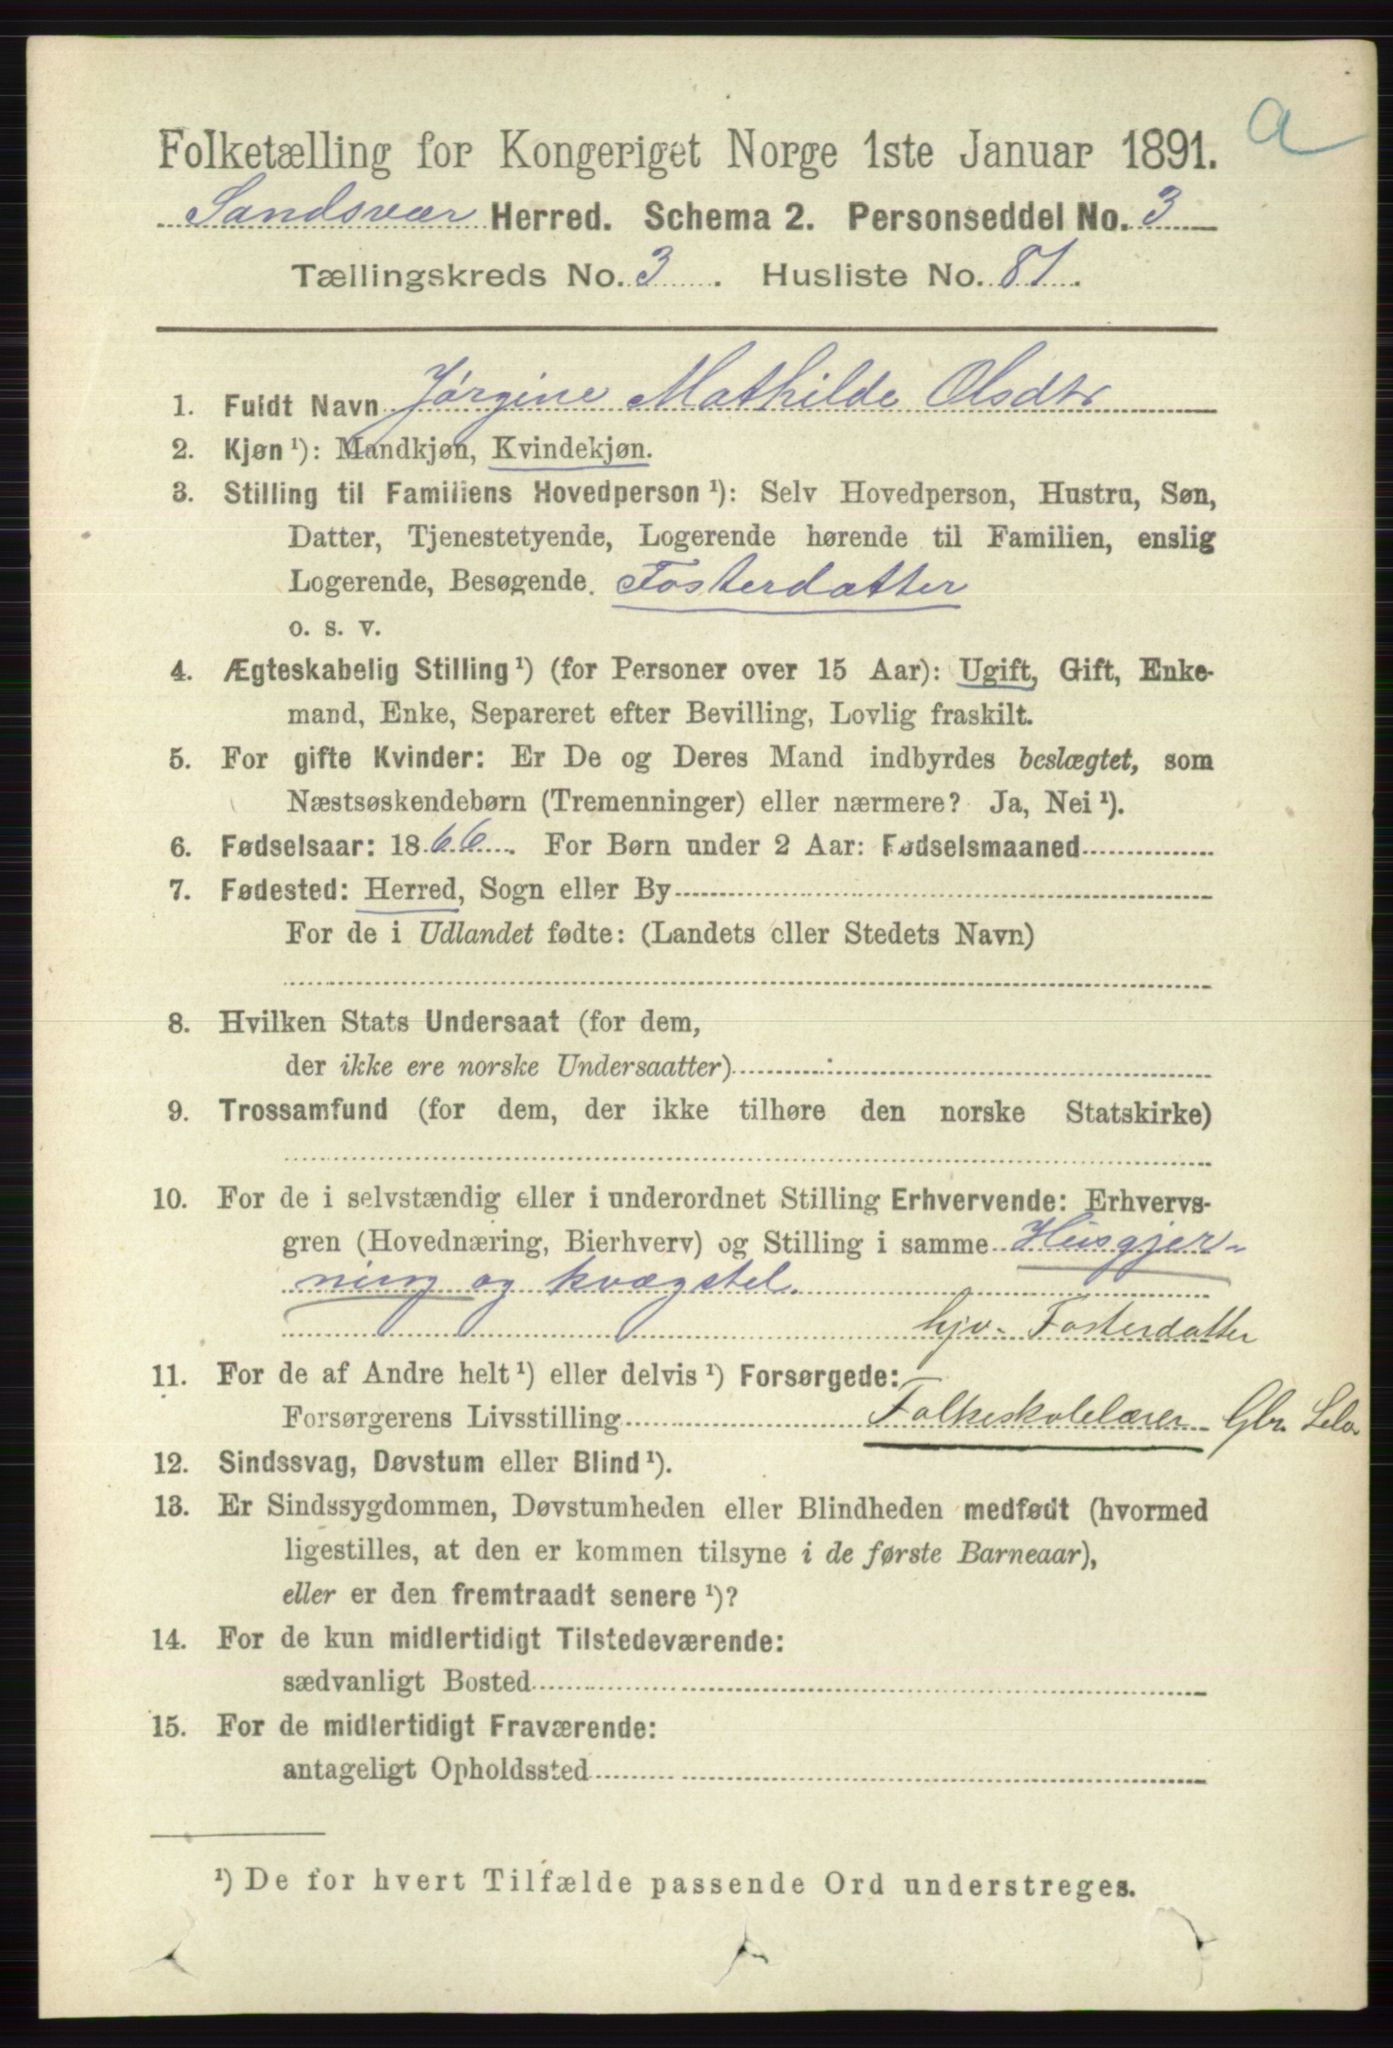 a
Folketælling for Kongeriget Norge 1ste Januar 1891.
Sandsvær Herred. Schema 2. Personseddel No. 3
Tællingskreds No. 3. Husliste No. 81.
1. Fuldt Navn Jørgine Mathilde Olsdtr
2. Kjøn ¹): Mandkjøn, Kvindekjøn.
3. Stilling til Familiens Hovedperson ¹): Selv Hovedperson, Hustru, Søn,
Datter, Tjenestetyende, Logerende hørende til Familien, enslig
Logerende, Besøgende. Fosterdatter
o. s. v.
4. Ægteskabelig Stilling ¹) (for Personer over 15 Aar): Ugift, Gift, Enke-
mand, Enke, Separeret efter Bevilling, Lovlig fraskilt.
5. For gifte Kvinder: Er De og Deres Mand indbyrdes beslægtet, som
Næstsøskendebørn (Tremenninger) eller nærmere? Ja, Nei ¹).
6. Fødselsaar: 1866. For Børn under 2 Aar: Fødselsmaaned
7. Fødested: Herred, Sogn eller By
For de i Udlandet fødte: (Landets eller Stedets Navn)
8. Hvilken Stats Undersaat (for dem,
der ikke ere norske Undersaatter)
9. Trossamfund (for dem, der ikke tilhøre den norske Statskirke)
10. For de i selvstændig eller i underordnet Stilling Erhvervende: Erhvervs-
gren (Hovednæring, Bierhverv) og Stilling i samme Husgjer-
ning og kvægstel.
hjv. Fosterdatter
11. For de af Andre helt ¹) eller delvis ¹) Forsørgede:
Forsørgerens Livsstilling Folkeskolelærer Gbr.
12. Sindssvag, Døvstum eller Blind ¹).
13. Er Sindssygdommen, Døvstumheden eller Blindheden medfødt (hvormed
ligestilles, at den er kommen tilsyne i de første Barneaar),
eller er den fremtraadt senere ¹)?
14. For de kun midlertidigt Tilstedeværende:
sædvanligt Bosted
15. For de midlertidigt Fraværende:
antageligt Opholdssted
¹) De for hvert Tilfælde passende Ord understreges.